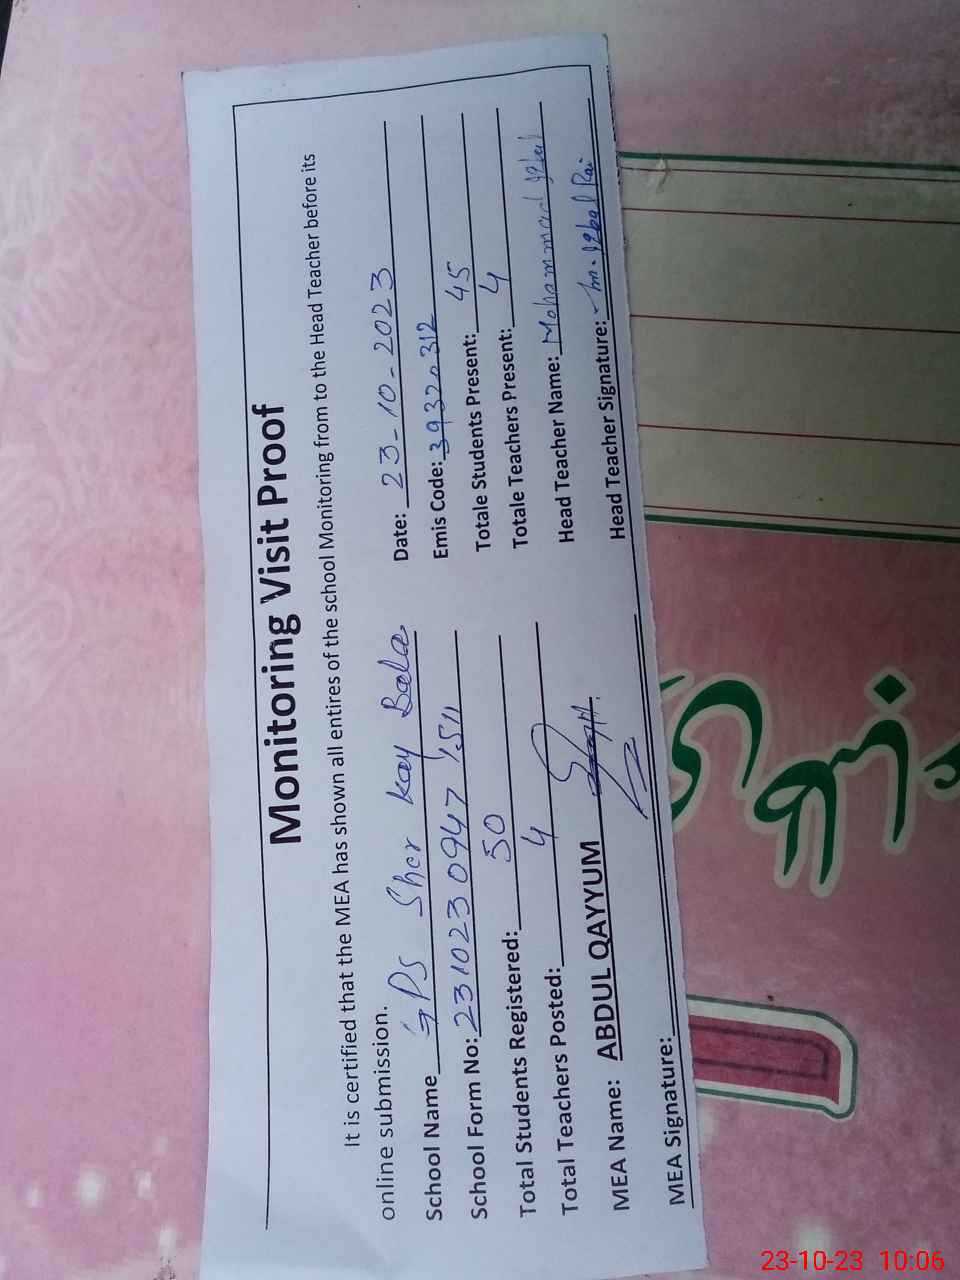 Monitoring Visit Proof
It is certified that the MEA has shown all entires of the school Monitoring from to the Head Teacher before its
online submission.
School Name GPS Sher Kay Bala Date: 23-10-2023
School Form No: 231023 0947 1511 Emis Code: 39320312
Total Students Registered: 50 Totale Students Present: 45
Total Teachers Posted: 4 Totale Teachers Present: 4
MEA Name: ABDUL QAYYUM Head Teacher Name: Mohammad Iqbal
MEA Signature: Head Teacher Signature: M. Iqbal Rai
23-10-23 10:06